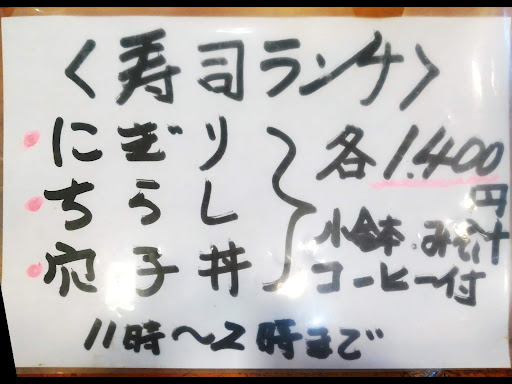 〈寿司ランチ〉
・にぎり
・ちらし
・穴子丼
各1.400円
小鉢・みそ汁
コーヒー付
11時〜2時まで